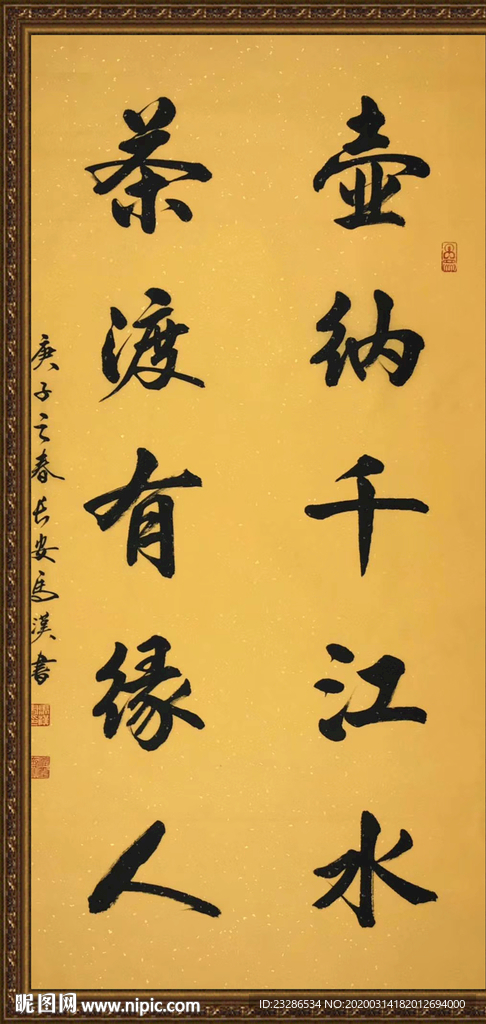 壶纳千江水
茶渡有缘人
庚子之春长安马汉书
昵图网 www.nipic.com
ID:23286534 NO:20200314182012694000